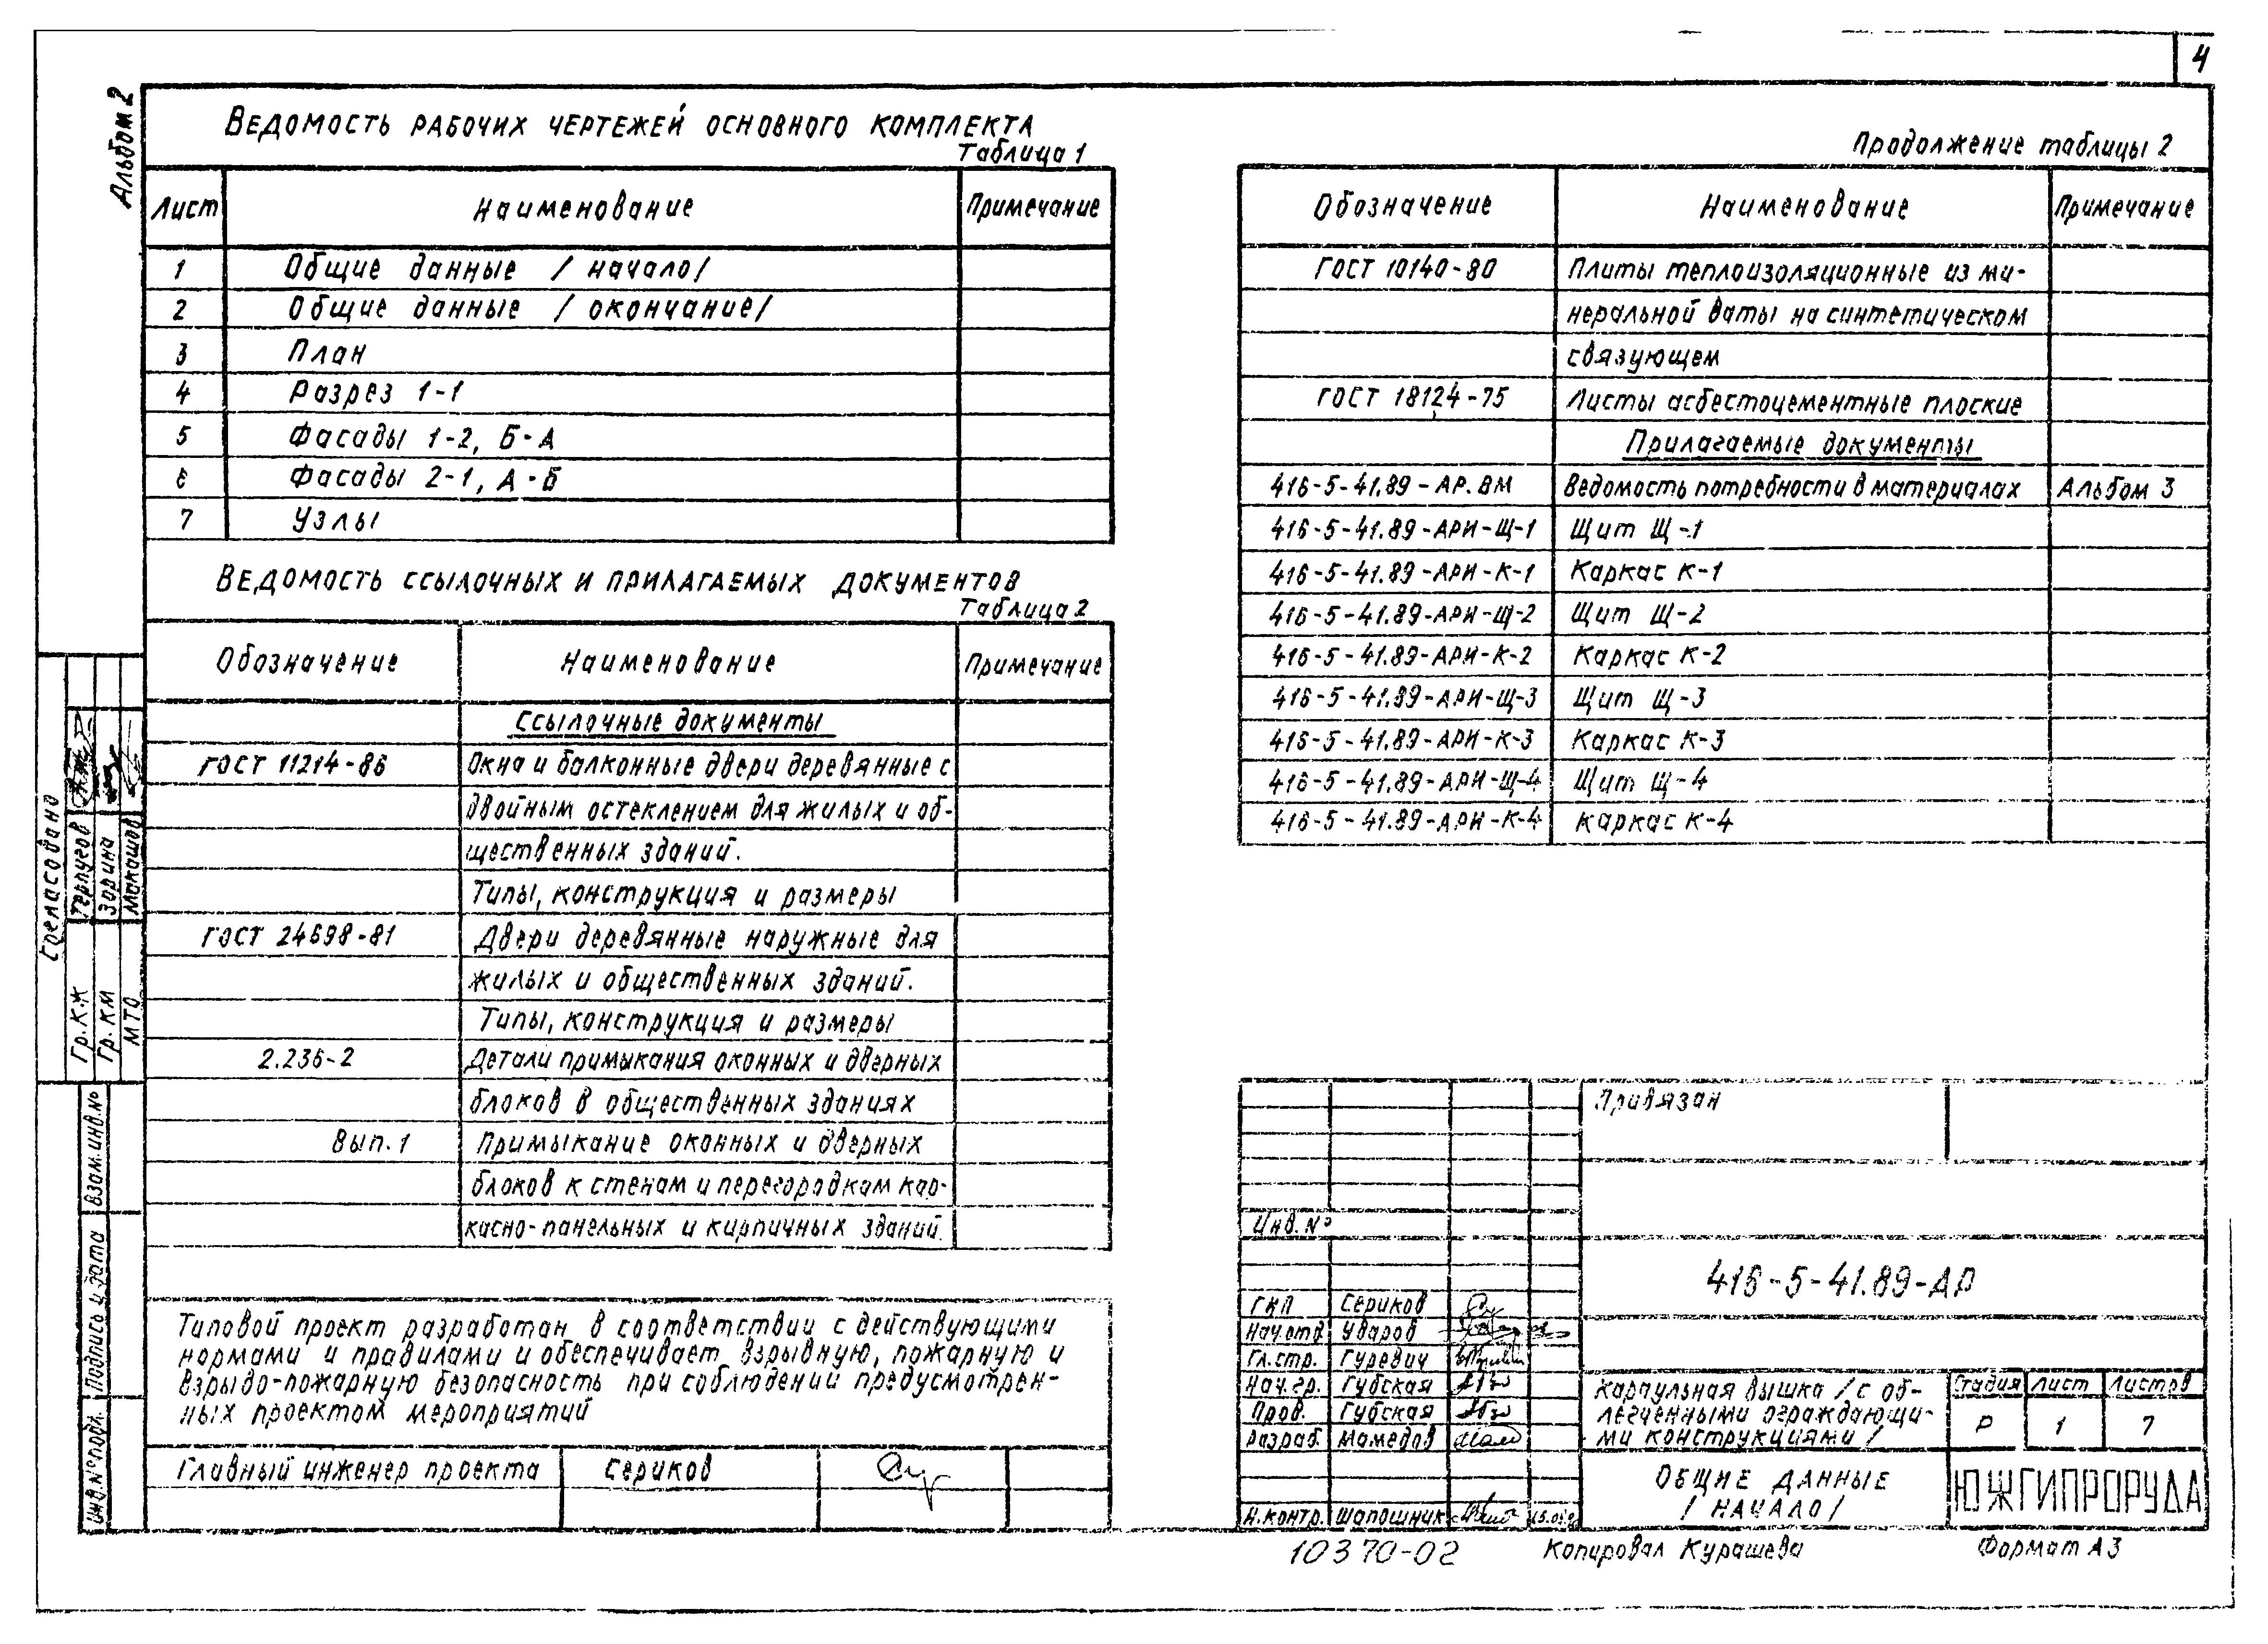 4
Альбом 2
Ведомость рабочих чертежей основного комплекта
Таблица 1
Лист Наименование Примечание
1 Общие данные /начало/
2 Общие данные /окончание/
3 План
4 Разрез 1-1
5 Фасады 1-2, Б-А
6 Фасады 2-1, А-Б
7 Узлы
Ведомость ссылочных и прилагаемых документов
Таблица 2
Обозначение Наименование Примечание
Ссылочные документы
ГОСТ 11214-86 Окна и балконные двери деревянные с
двойным остеклением для жилых и об-
щественных зданий.
Типы, конструкция и размеры
ГОСТ 24698-81 Двери деревянные наружные для
жилых и общественных зданий.
Типы, конструкция и размеры
2.236-2 Детали примыкания оконных и дверных
блоков в общественных зданиях
Вып.1 Примыкание оконных и дверных
блоков к стенам и перегородкам кар-
касно-панельных и кирпичных зданий.
Типовой проект разработан в соответствии с действующими
нормами и правилами и обеспечивает взрывную, пожарную и
взрыво-пожарную безопасность при соблюдении предусмотрен-
ных проектом мероприятий
Главный инженер проекта Сериков
Продолжение таблицы 2
Обозначение Наименование Примечание
ГОСТ 10140-80 Плиты теплоизоляционные из ми-
неральной ваты на синтетическом
связующем
ГОСТ 18124-75 Листы асбестоцементные плоские
Прилагаемые документы
416-5-41.89-АР.ВМ Ведомость потребности в материалах Альбом 3
416-5-41.89-АРИ-Щ-1 Щит Щ-1
416-5-41.89-АРИ-К-1 Каркас К-1
416-5-41.89-АРИ-Щ-2 Щит Щ-2
416-5-41.89-АРИ-К-2 Каркас К-2
416-5-41.89-АРИ-Щ-3 Щит Щ-3
416-5-41.89-АРИ-К-3 Каркас К-3
416-5-41.89-АРИ-Щ-4 Щит Щ-4
416-5-41.89-АРИ-К-4 Каркас К-4
Привязан
Инв. №
416-5-41.89-АР
ГИП Сериков
Нач.отд Уваров
Гл.стр. Гуревич
Нач.гр. Губская
Пров. Губская
Разраб. Мамедов
Н.контр. Шапошник
Караульная вышка /с об-
легченными ограждающи-
ми конструкциями/
Стадия Лист Листов
Р 1 7
Общие данные
/начало/
ЮЖГИПРОРУДА
10370-02 Копировал Курашева Формат А3
Согласовано
Гр. К.Ж Терпугов
Гр. КМ Зорина
МТО Макашов
Взам.инв.№
Подпись и дата
Инв.№ подл.